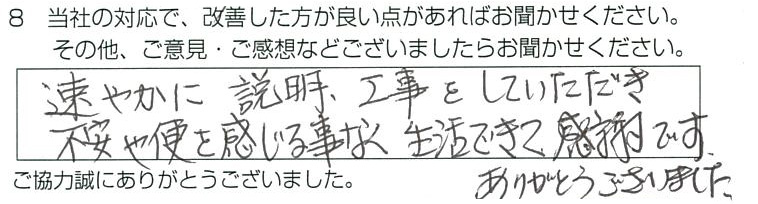 8 当社の対応で、改善した方が良い点があればお聞かせください。
その他、ご意見・ご感想などございましたらお聞かせください。
速やかに 説明、工事をしていただき
不安や便を感じる事なく 生活できて 感謝です。
ありがとうございました。
ご協力誠にありがとうございました。